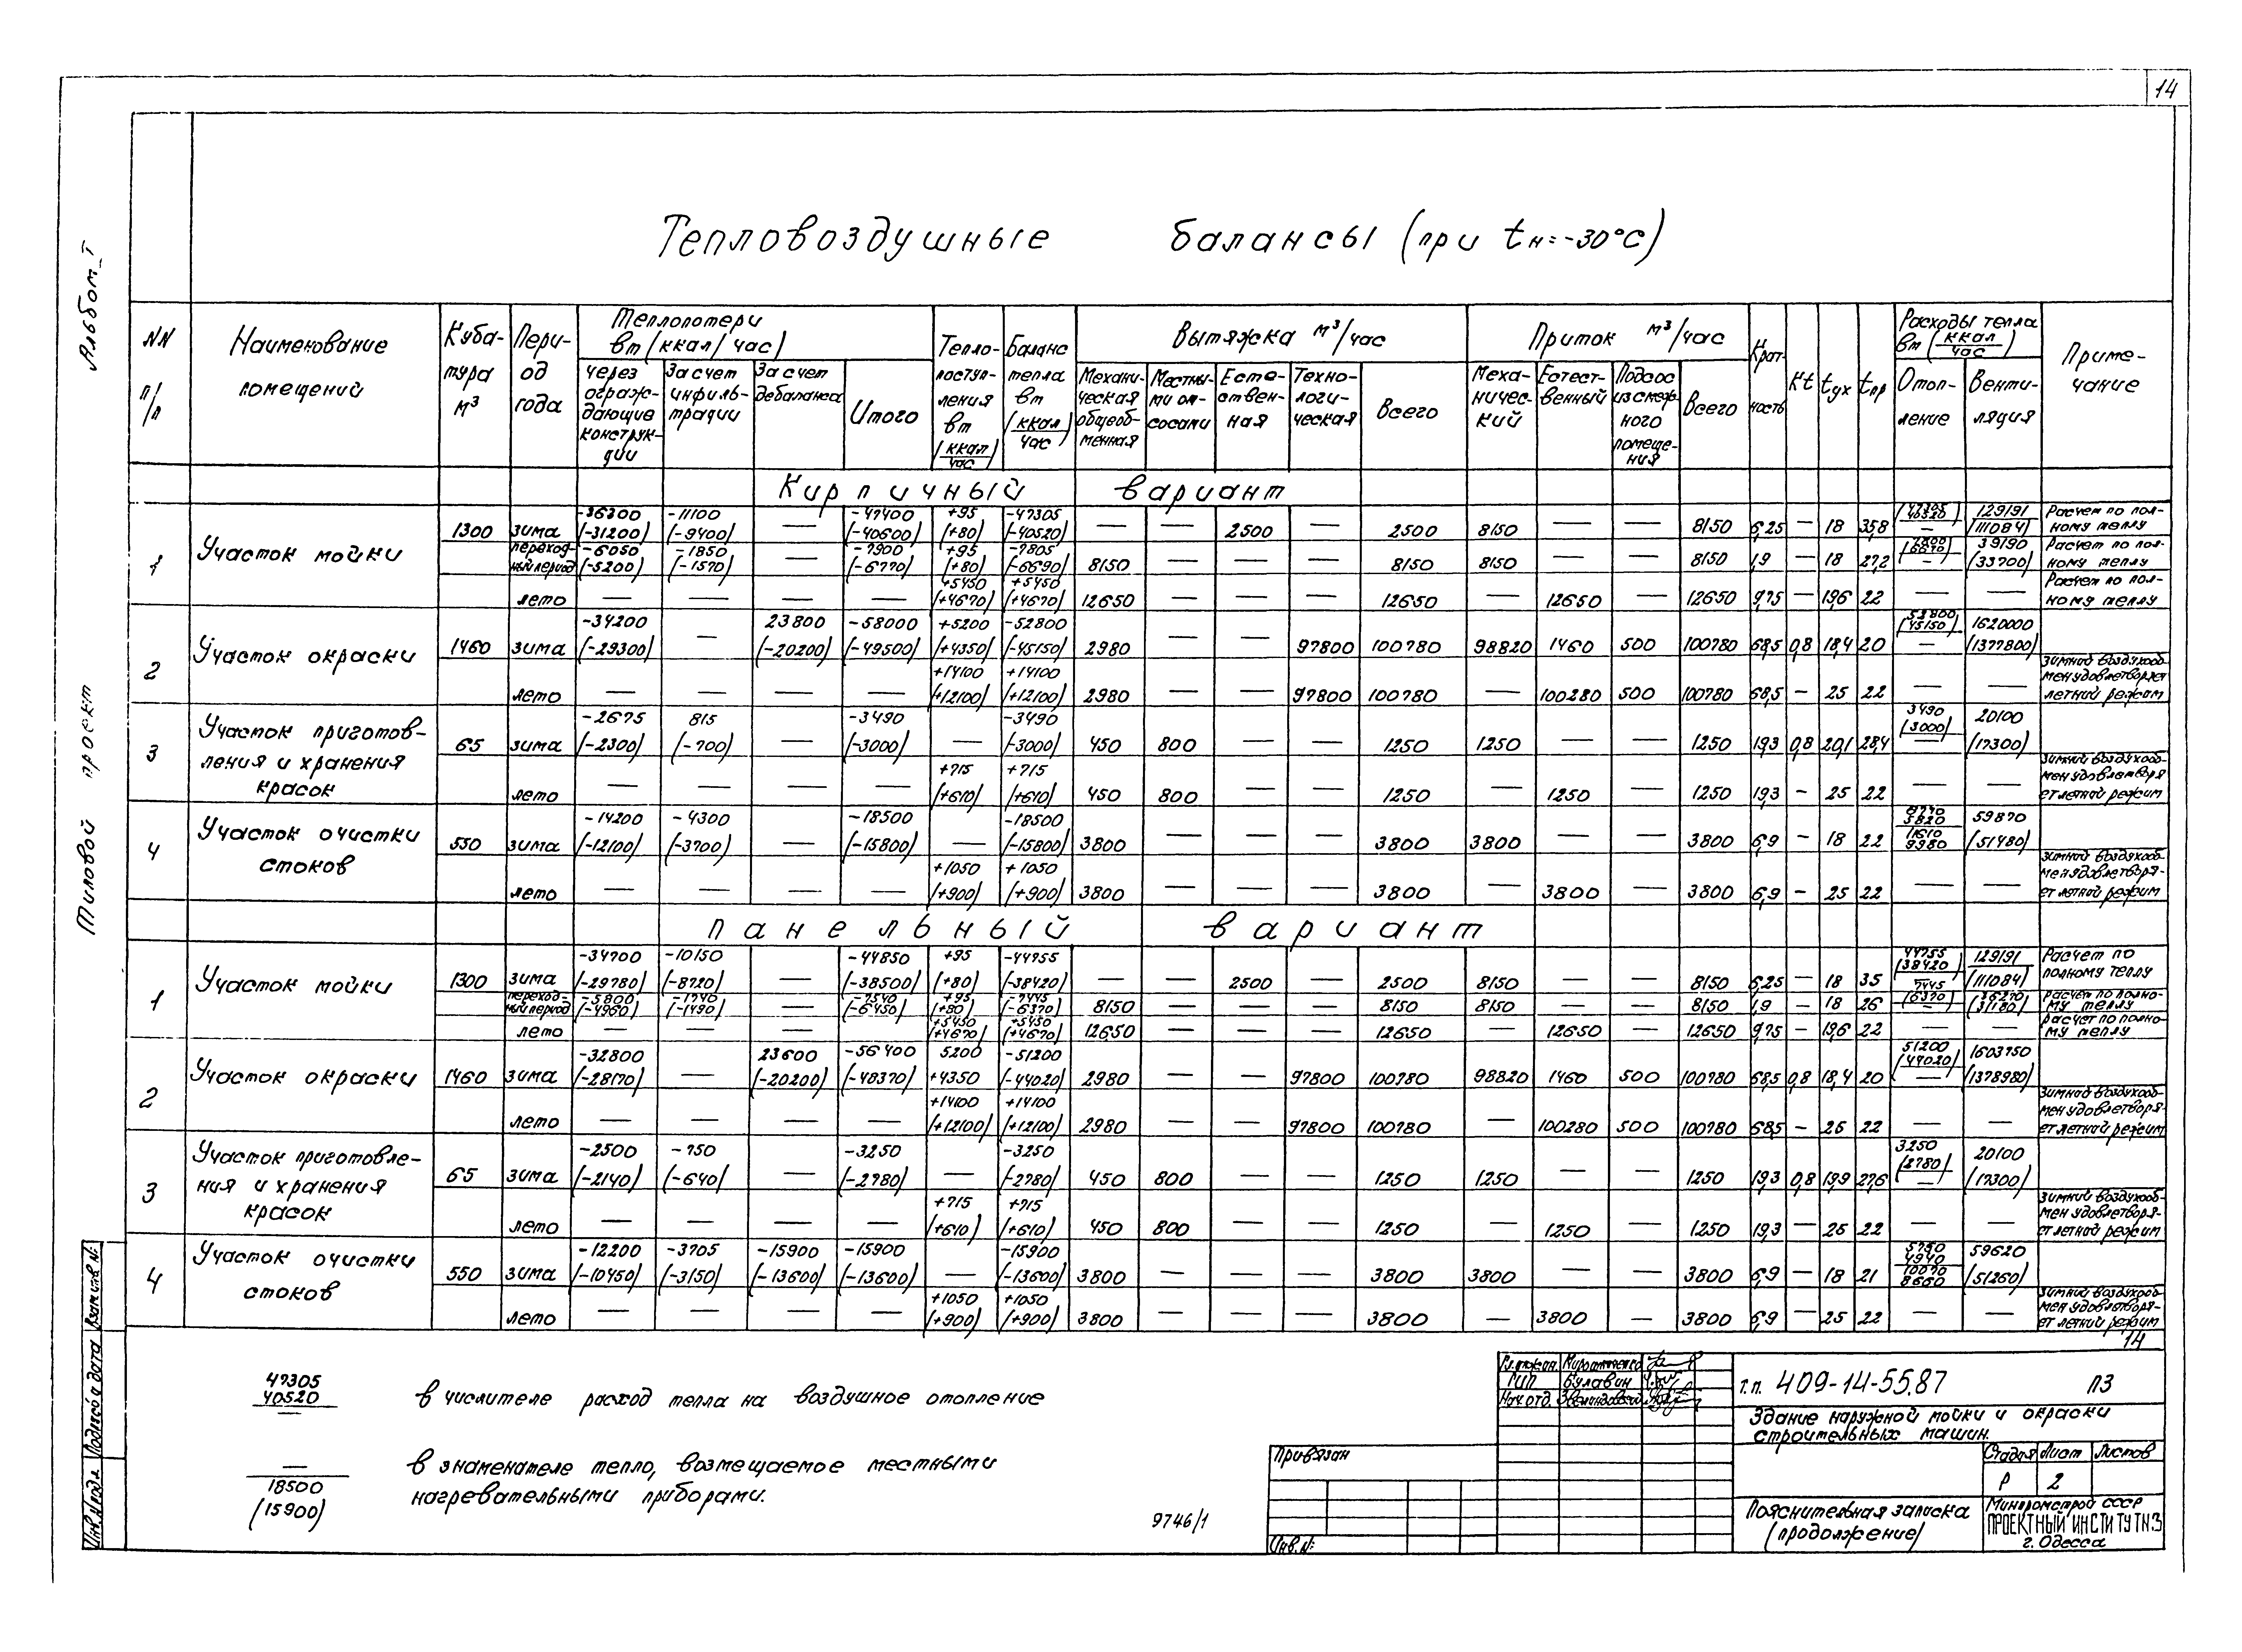 14
Альбом I
Типовой проект
Тепловоздушные балансы (при tн=-30°С)
NN п/п
Наименование помещений
Куба- тура м³
Пери- од года
Теплопотери вт (ккал/час)
через ограж- дающие конструк- ции
За счет инфиль- трации
За счет дебаланса
Итого
Тепло- поступ- ления вт (ккал/час)
Баланс тепла вт (ккал/час)
Вытяжка м³/час
Механи- ческая общеоб- менная
Местны- ми от- сосами
Есте- ствен- ная
Техно- логи- ческая
Всего
Приток м³/час
Меха- ничес- кий
Естест- венный
Подсос из смеж- ного помеще- ния
Всего
Крат- ность
Кt
tух
tпр
Расходы тепла вт (ккал/час)
Отоп- ление
Венти- ляция
Приме- чание
Кирпичный вариант
1 Участок мойки 1300 зима -36300 (-31200) -11100 (-9400) — -47400 (-40600) +95 (+80) -47305 (-40520) — — 2500 — 2500 8150 — — 8150 6,25 — 18 35,8 (47305 40520) — 129191 (111084) Расчет по пол- ному теплу
переход- ный период -6050 (-5200) -1850 (-1570) — -7900 (-6770) +95 (+80) -7805 (-6690) 8150 — — — 8150 8150 — — 8150 1,9 — 18 27,2 7800 (6670) — 39190 (33700) Расчет по пол- ному теплу
лето — — — — +5450 (+4670) +5450 (+4670) 12650 — — — 12650 — 12650 — 12650 9,75 — 19,6 22 — — Расчет по пол- ному теплу
2 Участок окраски 1460 зима -34200 (-29300) — 23800 (-20200) -58000 (-49500) +5200 (+4350) -52800 (-45150) 2980 — — 97800 100780 98820 1460 500 100780 68,5 0,8 18,4 20 52800 (45150) — 1620000 (1377800)
лето — — — — +14100 (+12100) +14100 (+12100) 2980 — — 97800 100780 — 100280 500 100780 68,5 — 25 22 — — зимний воздухооб- мен удовлетворяет летний режим
3 Участок приготов- ления и хранения красок 65 зима -2675 (-2300) 815 (-700) — -3490 (-3000) — -3490 (-3000) 450 800 — — 1250 1250 — — 1250 19,3 0,8 20,1 28,4 3490 (3000) — 20100 (17300)
лето — — — — +715 (+610) +715 (+610) 450 800 — — 1250 — 1250 — 1250 19,3 — 25 22 — — зимний воздухооб- мен удовлетворя ет летний режим
4 Участок очистки стоков 550 зима -14200 (-12100) -4300 (-3700) — -18500 (-15800) — -18500 (-15800) 3800 — — — 3800 3800 — — 3800 6,9 — 18 22 3820 11610 9980 59870 (51480)
лето — — — — +1050 (+900) +1050 (+900) 3800 — — — 3800 — 3800 — 3800 6,9 — 25 22 — — зимний воздухооб- мен удовлетворя- ет летний режим
панельный вариант
1 Участок мойки 1300 зима -34700 (-29780) -10150 (-8720) — -44850 (-38500) +95 (+80) -44755 (-38420) — — 2500 — 2500 8150 — — 8150 6,25 — 18 35 44755 (38420) 129191 (111084) Расчет по полному теплу
переход- ный период -5800 (-4960) -1740 (-1490) — -7540 (-6450) +95 (+80) -7445 (-6370) 8150 — — — 8150 8150 — — 8150 1,9 — 18 26 7445 (6370) — 36270 (31180) расчет по полно- му теплу
лето — — — — +5450 (+4670) +5450 (+4670) 12650 — — — 12650 — 12650 — 12650 9,75 — 19,6 22 — — расчет по полно- му теплу
2 Участок окраски 1460 зима -32800 (-28170) — 23600 (-20200) -56400 (-48370) 5200 +4350 -51200 (-44020) 2980 — — 97800 100780 98820 1460 500 100780 68,5 0,8 18,4 20 51200 (44020) — 1603750 (1378980)
лето — — — — +14100 (+12100) +14100 (+12100) 2980 — — 97800 100780 — 100280 500 100780 68,5 — 26 22 — — зимний воздухооб- мен удовлетворя- ет летний режим
3 Участок приготовле- ния и хранения красок 65 зима -2500 (-2140) -750 (-640) — -3250 (-2780) — -3250 (-2780) 450 800 — — 1250 1250 — — 1250 19,3 0,8 19,9 27,6 3250 (2780) — 20100 (17300)
лето — — — — +715 (+610) +715 (+610) 450 800 — — 1250 — 1250 — 1250 19,3 — 26 22 — — зимний воздухооб- мен удовлетворя- ет летний режим
4 Участок очистки стоков 550 зима -12200 (-10450) -3705 (-3150) -15900 (-13600) -15900 (-13600) — -15900 (-13600) 3800 — — — 3800 3800 — — 3800 6,9 — 18 21 5750 4940 10070 8660 59620 (51260)
лето — — — — +1050 (+900) +1050 (+900) 3800 — — — 3800 — 3800 — 3800 6,9 — 25 22 — — зимний воздухооб- мен удовлетворя- ет летний режим
14
47305 40520 — в числителе расход тепла на воздушное отопление
— 18500 (15900) в знаменателе тепло, возмещаемое местными
нагревательными приборами.
9746/1
Привязан
Инв. №:
ГИП Булавин
Нач. отд.
т.п. 409-14-55.87 ПЗ
Здание наружной мойки и окраски
строительных машин.
Стадия Лист Листов
Р 2
Пояснительная записка
(продолжение)
Минпромстрой СССР
ПРОЕКТНЫЙ ИНСТИТУТ N3
г. Одесса
Взам. инв. №:
Подпись и дата
Инв. N подл.